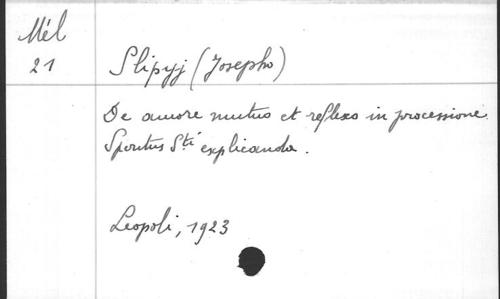 Mél
21
Slipyj (Josepho)
De amore mutuo et reflexo in processione
Spiritus Sti explicanda.
Leopoli, 1923